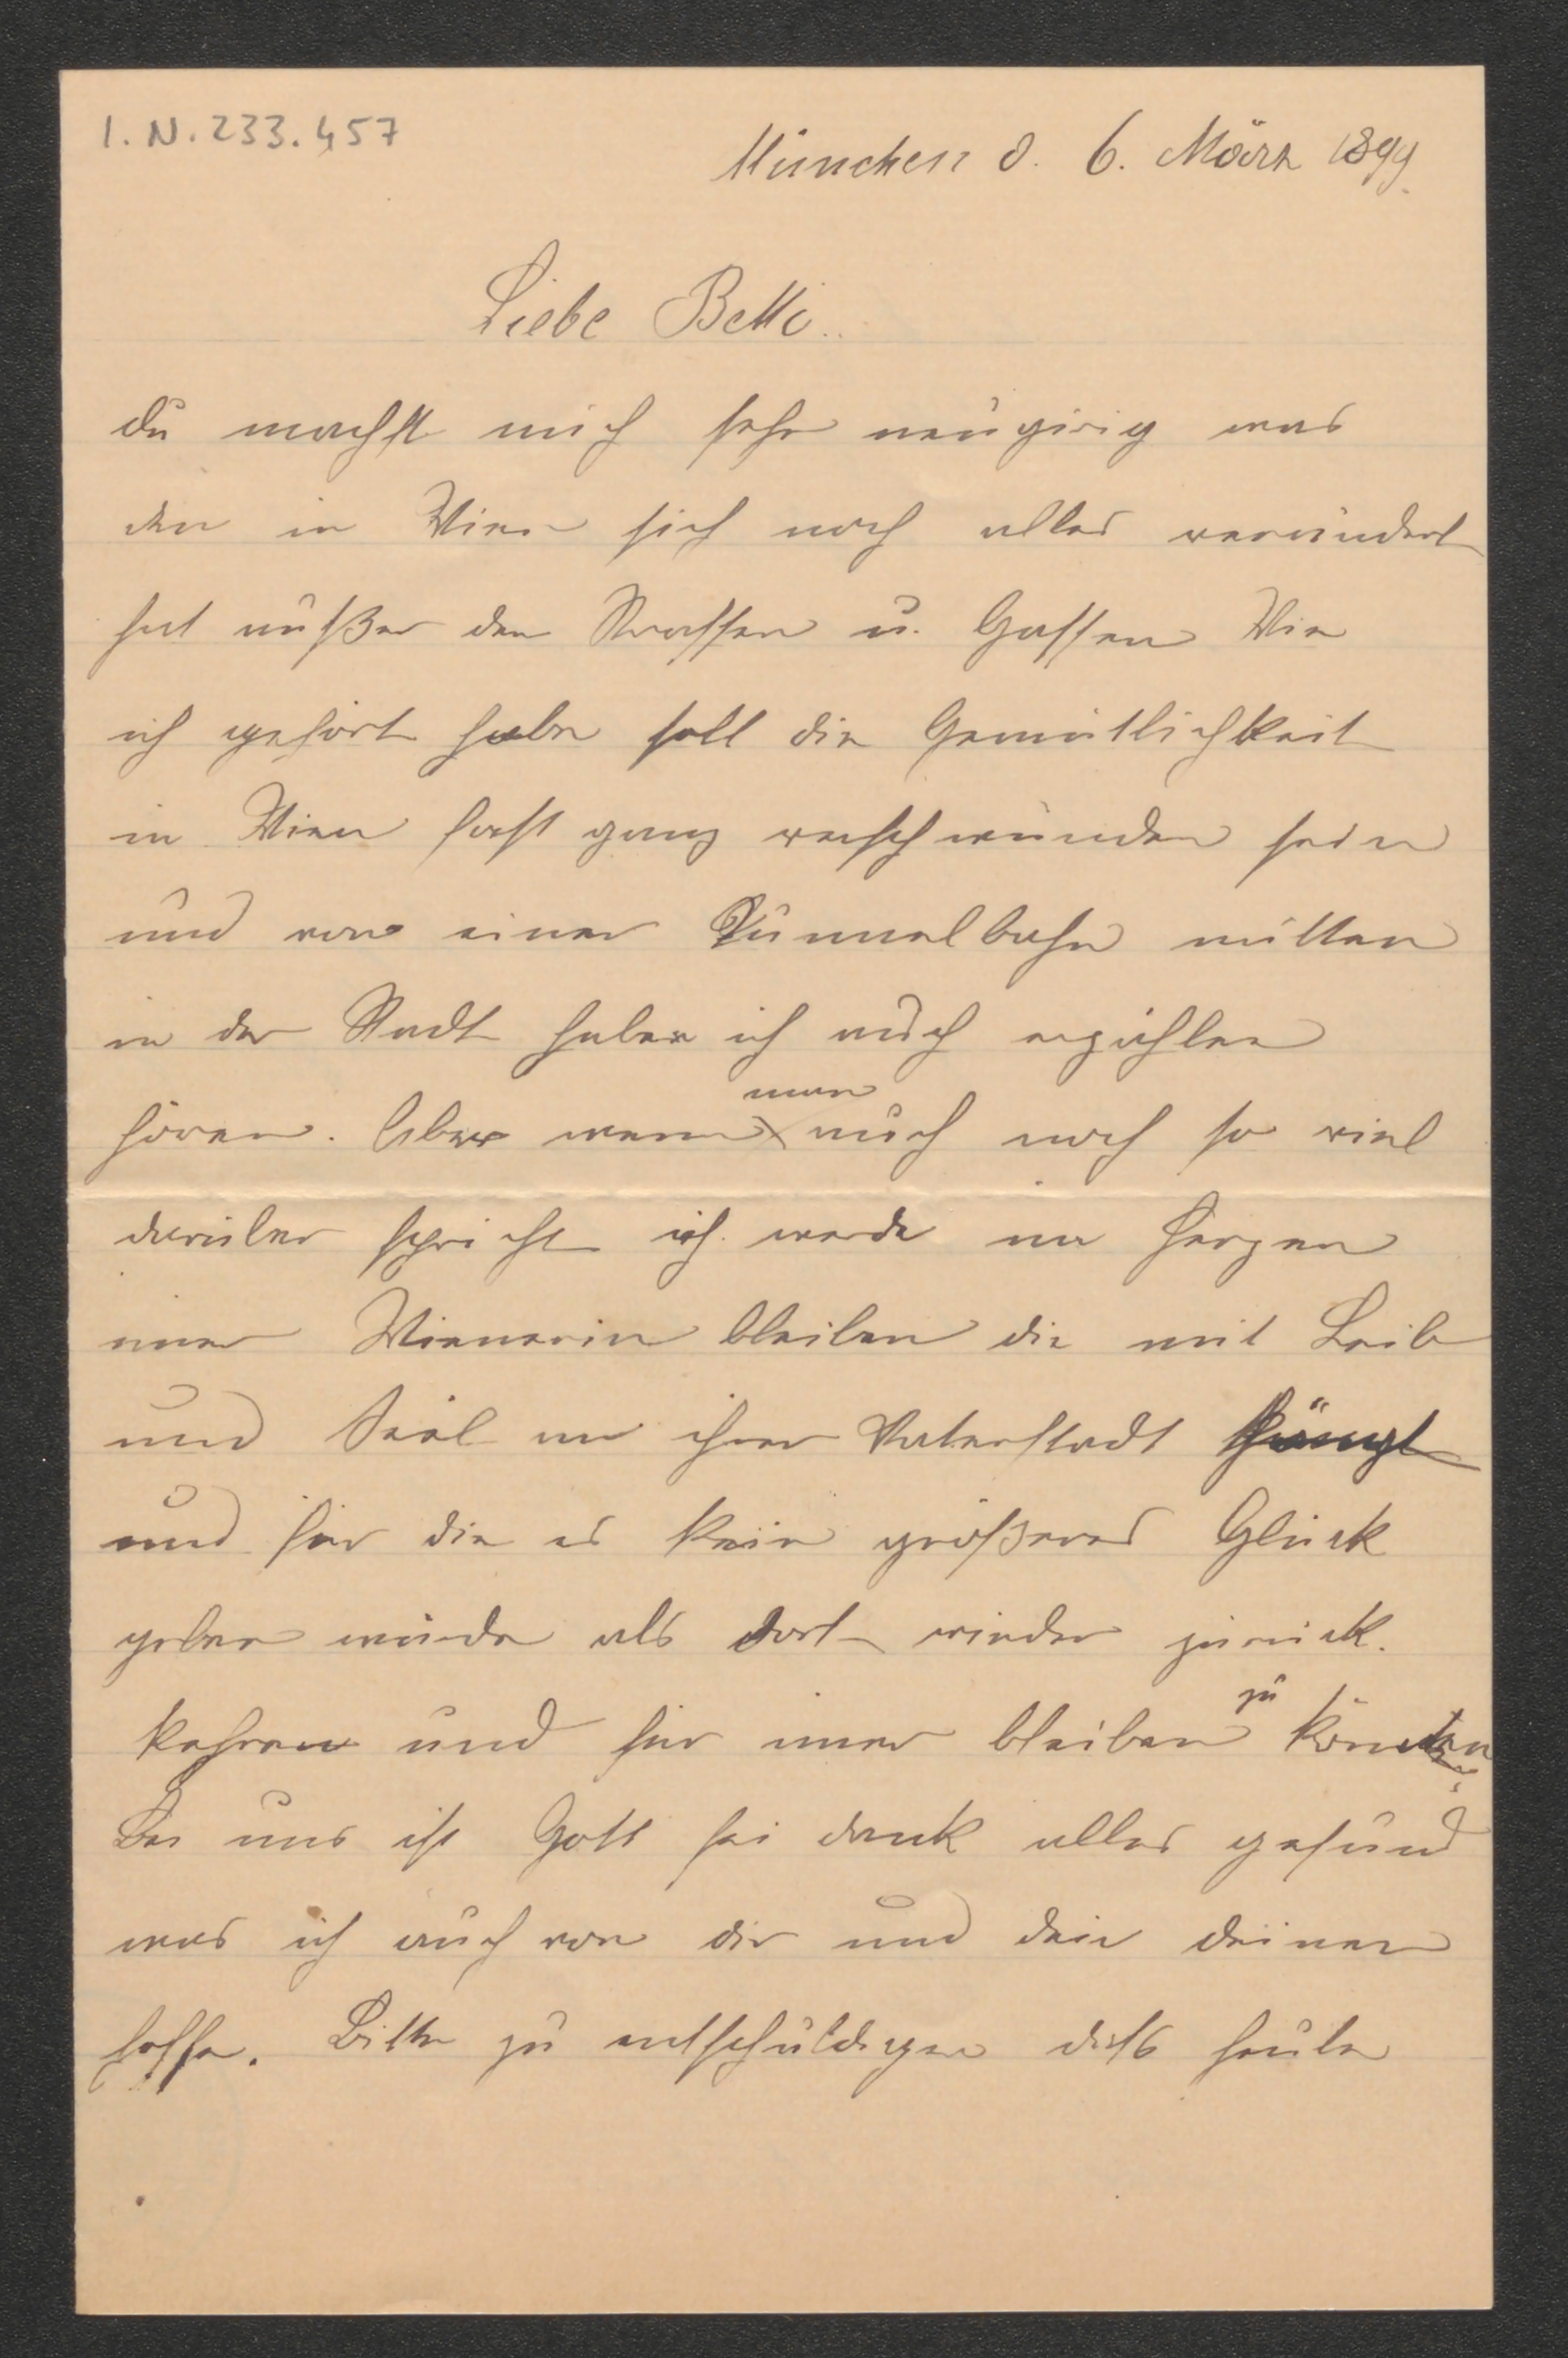 I.N. 233.457
München d. 6. März 1899.
Liebe Betti..
du machst mich sehr neugirig was
den in Wien sich noch alles verändert
hat außer den Strassen u. Gassen Wie
ich gehört habe soll die Gemütlichkeit
in Wien fast ganz verschwunden sein
und von einer Tunnelbahn mitten
in der Stadt habe ich auch erzählen
hören. Aber wenn man auch noch so viel
darüber spricht ich werde im Herzen
imer Wienerin bleiben die mit Leib
und Seel an ihrer Vaterstadt hängt
und für die es kein größeres Glück
geben würde als dort wieder zurück.
kehren und für imer bleiben zu könen
Bei uns ist Gott sei dank alles gesund
was ich auch von dir und dein deinen
hoffe. Bitte zu entschuldigen dass heute